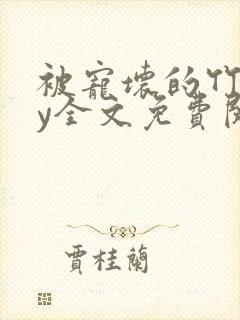 被寵壞的竹
y全文免費閱
賈桂蘭